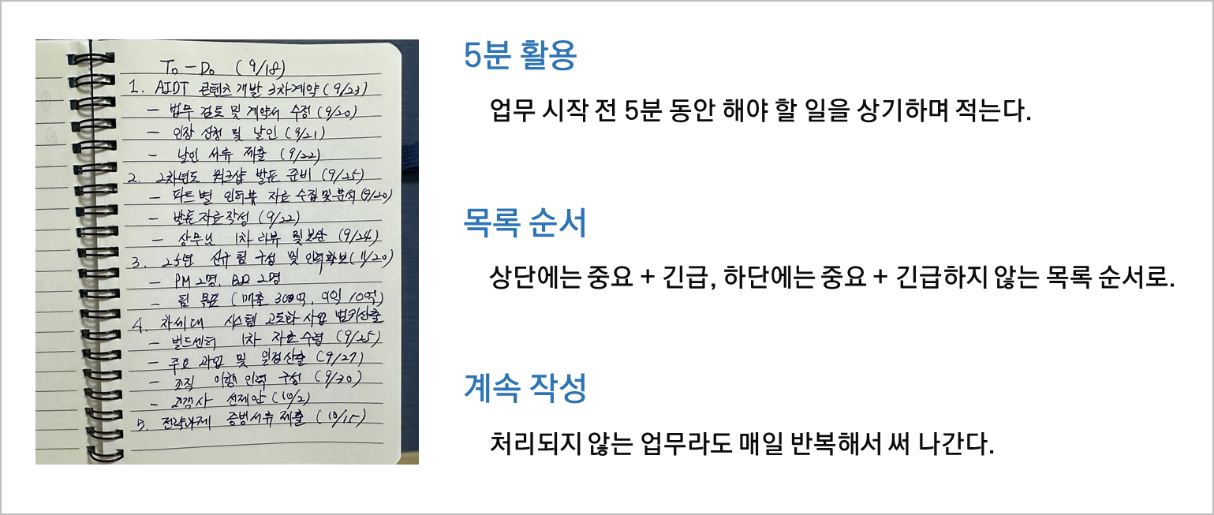 To-Do (9/18)
1. AIDT 콘텐츠 개발 3차계약 (9/23)
- 법무 검토 및 계약서 수정 (9/20)
- 인장 신청 및 날인 (9/21)
- 날인 서류 제출 (9/22)
2. 2차년도 워크샵 발표 준비 (9/25)
- 파트별 인터뷰 자료 수집 및 분석 (9/20)
- 발표자료작성 (9/22)
- 상무님 1차 리뷰 및 보완 (9/24)
3. 25년 신규 팀 구성 및 인력확보 (11/20)
- PM 2명, 2명
- 팀 목표 (매출 300억, 10억)
4. 차세대 시스템 고도화 사업
- 빌드센터 1차 자료수령 (9/25)
- 주요 과업 및 일정산출 (9/27)
- 조직 이행 인력 구성 (9/30)
- 고객사 선제안 (10/2)
5. 전략과제 증빙서류 제출 (10/15)
5분 활용
업무 시작 전 5분 동안 해야 할 일을 상기하며 적는다.
목록 순서
상단에는 중요 + 긴급, 하단에는 중요 + 긴급하지 않는 목록 순서로.
계속 작성
처리되지 않는 업무라도 매일 반복해서 써 나간다.